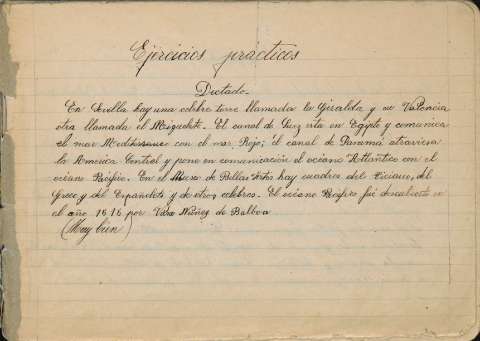 Ejercicios prácticos
Dictado.
En Sevilla hay una celebre torre llamada la Giralda y en Valencia
otra llamada el Miguelete. El canal de Suez esta en Egipto y comunica
el mar Mediterraneo con el mar Rojo; el canal de Panamá atraviesa
la America Central y pone en comunicación el océano Atlantico con el
océano Pacifico. En el Museo de Bellas Artes hay cuadros del Ticiano, del
Greco y del Españoleto y de otros celebres. El océano Pacifico fué descubierto en
el año 1515 por Vasco Nuñez de Balboa
(Muy bien)